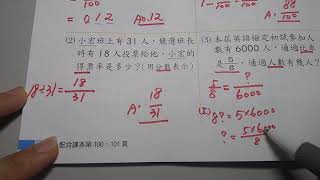 = 0.12  A0.12
88/100
100
(2) 小宏班上有31人，競選班長
時有18人投票給他，小宏
的得票率是多少？(用分數表示)
18÷31 = 18/31
A: 18/31
(3) 本區英語檢定初試參加人
數有6000人，通過比率
是5/8，通過人數有幾人？
5/8 = ?/6000
8? = 5×6000
? = 5×6000/8
配合課本第100、101頁